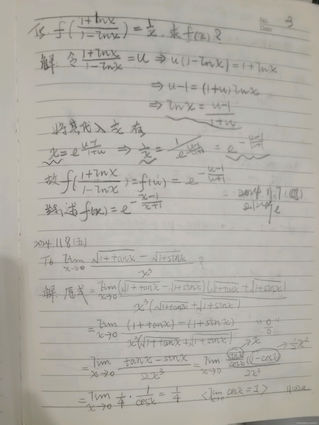 设 f(\frac{1+lnx}{1-lnx}) = \frac{1}{x}, 求 f(x)?
3
解: 令 \frac{1+lnx}{1-lnx} = u ⇒ u(1-lnx) = 1+lnx
⇒ u-1 = (1+u)lnx
⇒ lnx = \frac{u-1}{1+u}
将其代入 \frac{1}{x} 有
x = e^{\frac{u-1}{1+u}} ⇒ \frac{1}{x} = \frac{1}{e^{\frac{u-1}{1+u}}} = e^{-\frac{u-1}{u+1}}
故 f(\frac{1+lnx}{1-lnx}) = f(u) = e^{-\frac{u-1}{u+1}}
综述 f(x) = e^{-\frac{x-1}{x+1}}
2024.11.7 (四)
2024.11.8 (五)
\lim_{x→0} \frac{\sqrt{1+tanx} - \sqrt{1+sinx}}{x^3} ?
解: 原式 = \lim_{x→0} \frac{(\sqrt{1+tanx} - \sqrt{1+sinx})(\sqrt{1+tanx} + \sqrt{1+sinx})}{x^3(\sqrt{1+tanx} + \sqrt{1+sinx})}
= \lim_{x→0} \frac{(1+tanx) - (1+sinx)}{x^3(\sqrt{1+tanx} + \sqrt{1+sinx})} \frac{0}{0}
= \lim_{x→0} \frac{tanx - sinx}{2x^3} = \lim_{x→0} \frac{\frac{sinx}{cosx}(1-cosx)}{2x^3} → x → \frac{1}{2}x^2
= \lim_{x→0} \frac{1}{4} · \frac{1}{cosx} = \frac{1}{4} < \lim_{x→0} cosx = 1 >